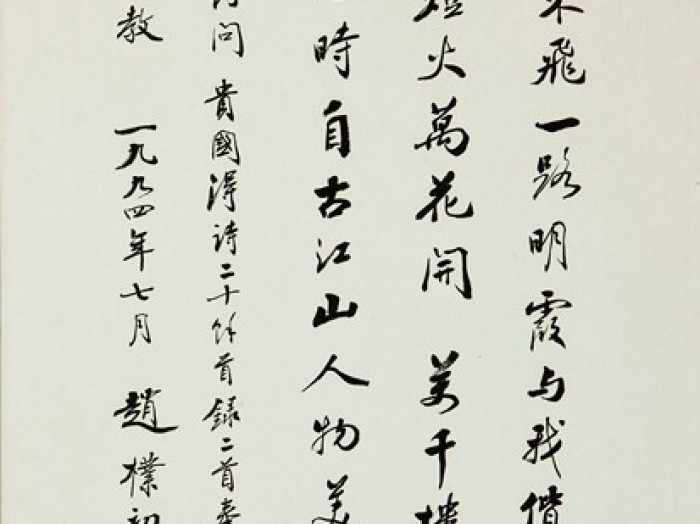 飛一路明霞与我偕
燈火萬花開 千樓
時自古江山人物美
問 貴國得詩二十餘首録二首奉
教 一九九四年七月 趙樸初